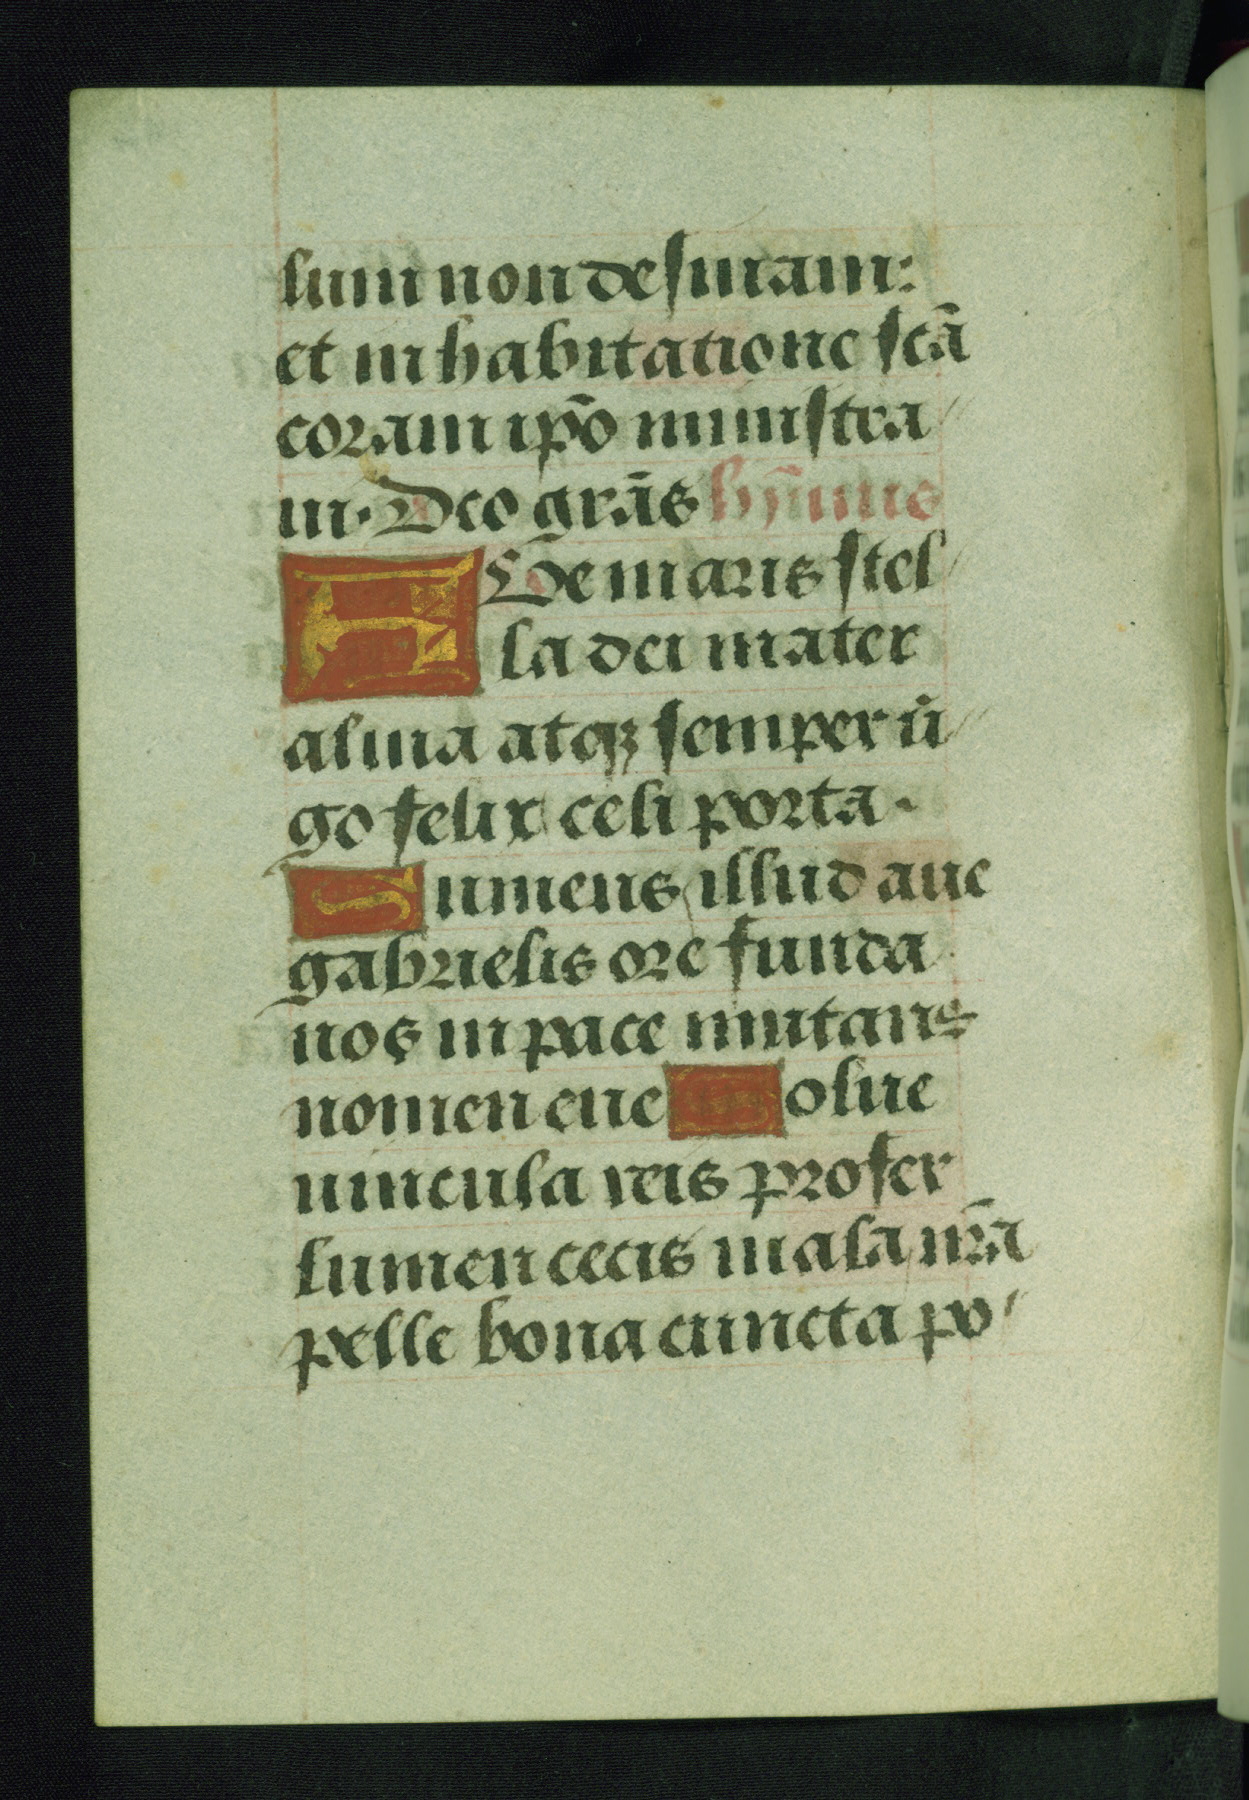 lum non desinam:
et in habitatione scā
coram ipō ministra
ui. Deo grās hȳmnus
AUe maris stel
la dei mater
alma atqꝫ semper ūi
go felix celi porta.
Sumens illud aue
gabrielis ore funda
nos in pace mutans
nomen eue Solue
uincula reis profer
lumen cecis mala nrā
pelle bona cuncta po